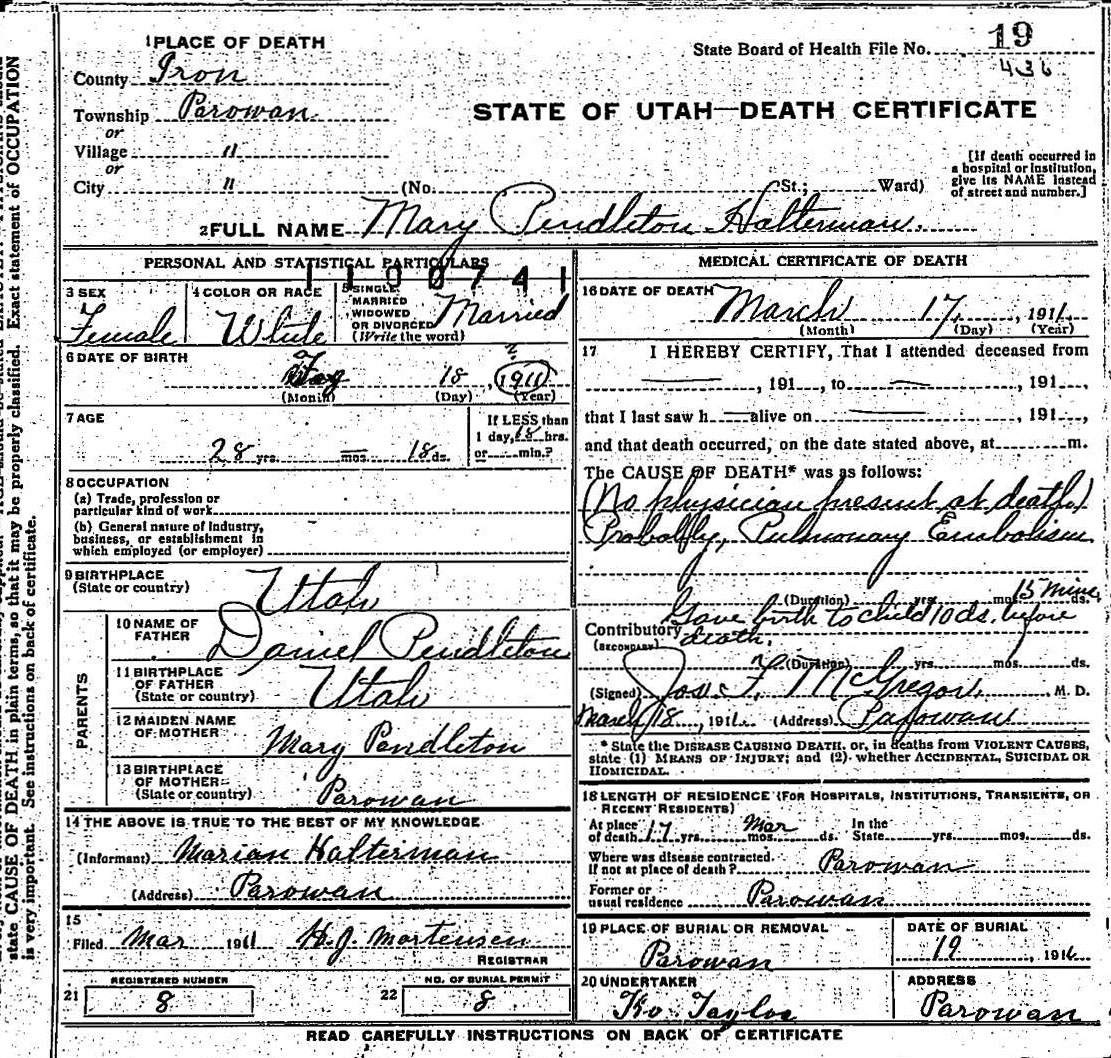 1 PLACE OF DEATH
State Board of Health File No. 19
436
County Iron
Township Parowan
or
Village "
or
City " (No. St.; Ward)
STATE OF UTAH—DEATH CERTIFICATE
[If death occurred in
a hospital or institution,
give its NAME instead
of street and number.]
2 FULL NAME Mary Pendleton Halterman.
PERSONAL AND STATISTICAL PARTICULARS
1100741
3 SEX
Female
4 COLOR OR RACE
White
5 SINGLE,
MARRIED
WIDOWED
OR DIVORCED
(Write the word)
Married
6 DATE OF BIRTH
18, 1911 ?
(Month) (Day) (Year)
7 AGE
28 yrs. — mos. 18 ds.
If LESS than
1 day, 18 hrs.
or min.?
8 OCCUPATION
(a) Trade, profession or
particular kind of work
(b) General nature of Industry,
business, or establishment in
which employed (or employer)
9 BIRTHPLACE
(State or country)
Utah
PARENTS
10 NAME OF
FATHER
Daniel Pendleton
11 BIRTHPLACE
OF FATHER
(State or country)
Utah
12 MAIDEN NAME
OF MOTHER
Mary Pendleton
13 BIRTHPLACE
OF MOTHER
(State or country)
Parowan
14 THE ABOVE IS TRUE TO THE BEST OF MY KNOWLEDGE
(Informant) Marian Halterman
(Address) Parowan
15
Filed Mar 1911 H. J. Mortensen
REGISTRAR
REGISTERED NUMBER
21 8
NO. OF BURIAL PERMIT
22 8
MEDICAL CERTIFICATE OF DEATH
16 DATE OF DEATH
March 17, 1911
(Month) (Day) (Year)
17 I HEREBY CERTIFY, That I attended deceased from
—, 191, to —, 191,
that I last saw h — alive on —, 191,
and that death occurred, on the date stated above, at m.
The CAUSE OF DEATH* was as follows:
(No physician present at death.)
Probably, Pulmonary Embolism
(Duration) yrs. mos. 15 mins. ds.
Gave birth to child 10 ds. before
Contributory death.
(SECONDARY)
(Duration) yrs. mos. ds.
(Signed) Jos. F. McGregor, M. D.
March 18, 1911. (Address) Parowan
* State the DISEASE CAUSING DEATH, or, in deaths from VIOLENT CAUSES,
state (1) MEANS OF INJURY; and (2) whether ACCIDENTAL, SUICIDAL OR
HOMICIDAL.
18 LENGTH OF RESIDENCE (FOR HOSPITALS, INSTITUTIONS, TRANSIENTS, OR
RECENT RESIDENTS)
At place
of death 17 yrs. Mar mos. ds. In the
State yrs. mos. ds.
Where was disease contracted.
If not at place of death? Parowan
Former or
usual residence Parowan
19 PLACE OF BURIAL OR REMOVAL
Parowan
DATE OF BURIAL
19, 1911
20 UNDERTAKER
Taylor
ADDRESS
Parowan
READ CAREFULLY INSTRUCTIONS ON BACK OF CERTIFICATE
Exact statement of OCCUPATION
state CAUSE OF DEATH in plain terms, so that it may be properly classified.
is very important. See instructions on back of certificate.